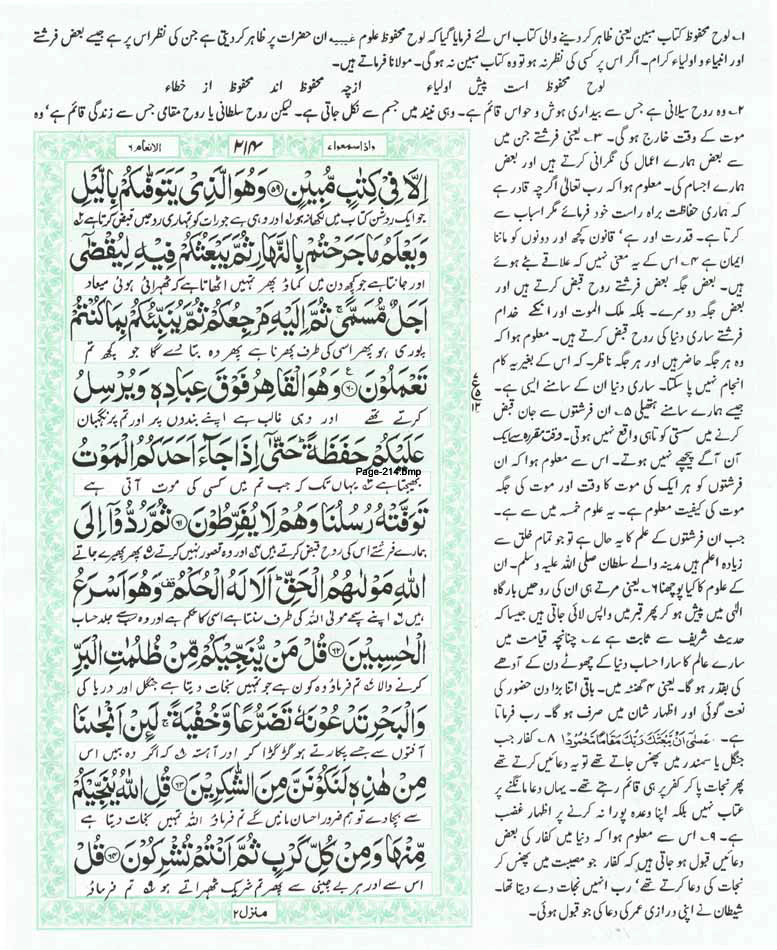 ۱؎ لوح محفوظ کتاب مبین یعنی ظاہر کر دینے والی کتاب اس لئے فرمایا گیا کہ لوح محفوظ علوم غیبیہ ان حضرات پر ظاہر کر دیتی ہے جن کی نظر اس پر ہے جیسے بعض فرشتے
اور انبیاء و اولیاء کرام۔ اگر اس پر کسی کی نظر نہ ہو تو وہ کتاب مبین نہ ہو گی۔ مولانا فرماتے ہیں۔
لوح محفوظ است پیش اولیاء ازچہ محفوظ اند محفوظ از خطاء
۲؎ وہ روح سیلانی ہے جس سے بیداری ہوش و حواس قائم ہے۔ وہی نیند میں جسم سے نکل جاتی ہے۔ لیکن روح سلطانی یا روح مقامی جس سے زندگی قائم ہے، وہ
موت کے وقت خارج ہو گی۔ ۳؎ یعنی فرشتے جن میں
سے بعض ہمارے اعمال کی نگرانی کرتے ہیں اور بعض
ہمارے اجسام کی۔ معلوم ہوا کہ رب تعالیٰ اگرچہ قادر ہے
کہ ہماری حفاظت براہ راست خود فرمائے مگر اسباب سے
کرتا ہے۔ قدرت اور ہے، قانون کچھ اور دونوں کو ماننا
ایمان ہے ۴؎ اس کے یہ معنی نہیں کہ علاقے بٹے ہوئے
ہیں۔ بعض جگہ بعض فرشتے روح قبض کرتے ہیں اور
بعض جگہ دوسرے۔ بلکہ ملک الموت اور انکے خدام
فرشتے ساری دنیا کی روح قبض کرتے ہیں۔ معلوم ہوا کہ
وہ ہر جگہ حاضر ہیں اور ہر جگہ ناظر۔ کہ اس کے بغیر یہ کام
انجام نہیں پا سکتا۔ ساری دنیا ان کے سامنے ایسی ہے۔
جیسے ہمارے سامنے ہتھیلی ۵؎ ان فرشتوں سے جان قبض
کرنے میں سستی کو تاہی واقع نہیں ہوتی۔ وقت مقررہ سے ایک
آن آگے پیچھے نہیں ہوتے۔ اس سے معلوم ہوا کہ ان
فرشتوں کو ہر ایک کی موت کا وقت اور موت کی جگہ
موت کی کیفیت معلوم ہے۔ یہ علوم خمسہ میں سے ہے۔
جب ان فرشتوں کے علم کا یہ حال ہے تو جو تمام خلق سے
زیادہ اعلم ہیں مدینہ والے سلطان صلی اللہ علیہ وسلم۔ ان
کے علوم کا کیا پوچھنا ۶؎ یعنی مرتے ہی ان کی روحیں بارگاہ
الٰہی میں پیش ہو کر پھر قبر میں واپس لائی جاتی ہیں جیسا کہ
حدیث شریف سے ثابت ہے ۷؎ چنانچہ قیامت میں
سارے عالم کا سارا حساب دنیا کے چھوٹے دن کے آدھے
کی بقدر ہو گا۔ یعنی ۴ گھنٹہ میں۔ باقی اتنا بڑا دن حضور کی
نعت گوئی اور اظہار شان میں صرف ہو گا۔ رب فرماتا
ہے۔ عَسٰٓى اَنْ يَّبْعَثَكَ رَبُّكَ مَقَامًا مَّحْمُوْدًا ۸؎ کفار جب
جنگل یا سمندر میں پھنس جاتے تھے تو یہ دعائیں کرتے تھے
پھر نجات پا کر کفر پر ہی قائم رہتے تھے۔ یہاں دعا مانگنے پر
عتاب نہیں بلکہ اپنا وعدہ پورا نہ کرنے پر اظہار غضب
ہے۔ ۹؎ اس سے معلوم ہوا کہ دنیا میں کفار کی بعض
دعائیں قبول ہو جاتی ہیں کہ کفار جو مصیبت میں پھنس کر
نجات کی دعا کرتے تھے، رب انہیں نجات دے دیتا تھا۔
شیطان نے اپنی درازی عمر کی دعا کی جو قبول ہوئی۔
واذا سمعوا۷ ۲۱۴ الانعام۶
اِلَّا فِىْ كِتٰبٍ مُّبِيْنٍ ۵۹ وَهُوَ الَّذِىْ يَتَوَفّٰىكُمْ بِالَّيْلِ
جو ایک روشن کتاب میں لکھا نہ ہو اور وہی ہے جو رات کو تمہاری روحیں قبض کرتا ہے
وَيَعْلَمُ مَا جَرَحْتُمْ بِالنَّهَارِ ثُمَّ يَبْعَثُكُمْ فِيْهِ لِيُقْضٰٓى
اور جانتا ہے جو کچھ دن میں کماؤ پھر تمہیں اٹھاتا ہے کہ ٹھہرائی ہوئی میعاد
اَجَلٌ مُّسَمًّى ثُمَّ اِلَيْهِ مَرْجِعُكُمْ ثُمَّ يُنَبِّئُكُمْ بِمَا كُنْتُمْ
پوری ہو پھر اسی کی طرف پھرنا ہے پھر وہ بتا دے گا جو کچھ تم
تَعْمَلُوْنَ ۶۰ وَهُوَ الْقَاهِرُ فَوْقَ عِبَادِهٖ وَيُرْسِلُ
کرتے تھے اور وہی غالب ہے اپنے بندوں پر اور تم پر نگہبان
عَلَيْكُمْ حَفَظَةً حَتّٰٓى اِذَا جَآءَ اَحَدَكُمُ الْمَوْتُ
Page-214.bmp
بھیجتا ہے یہاں تک کہ جب تم میں کسی کی موت آتی ہے
تَوَفَّتْهُ رُسُلُنَا وَهُمْ لَا يُفَرِّطُوْنَ ۶۱ ثُمَّ رُدُّوْٓا اِلَى
ہمارے فرشتے اس کی روح قبض کرتے ہیں اور وہ قصور نہیں کرتے پھر پھیرے جاتے
اللّٰهِ مَوْلٰىهُمُ الْحَقِّ اَلَا لَهُ الْحُكْمُ وَهُوَ اَسْرَعُ
ہیں اپنے سچے مولیٰ اللہ کی طرف سنتا ہے اسی کا حکم ہے اور وہ سب سے جلد حساب
الْحٰسِبِيْنَ ۶۲ قُلْ مَنْ يُّنَجِّيْكُمْ مِّنْ ظُلُمٰتِ الْبَرِّ
کرنے والا تم فرماؤ وہ کون ہے جو تمہیں نجات دیتا ہے جنگل اور دریا کی
وَالْبَحْرِ تَدْعُوْنَهٗ تَضَرُّعًا وَّخُفْيَةً لَئِنْ اَنْجٰىنَا
آفتوں سے جسے پکارتے ہو گڑ گڑا کر اور آہستہ کہ اگر وہ ہمیں اس
مِنْ هٰذِهٖ لَنَكُوْنَنَّ مِنَ الشّٰكِرِيْنَ ۶۳ قُلِ اللّٰهُ يُنَجِّيْكُمْ
سے بچا دے تو ہم ضرور احسان مانیں گے تم فرماؤ اللہ تمہیں نجات دیتا ہے
مِّنْهَا وَمِنْ كُلِّ كَرْبٍ ثُمَّ اَنْتُمْ تُشْرِكُوْنَ ۶۴ قُلْ
اس سے اور ہر بے چینی سے پھر تم شریک ٹھہراتے ہو تم فرماؤ
منزل۲